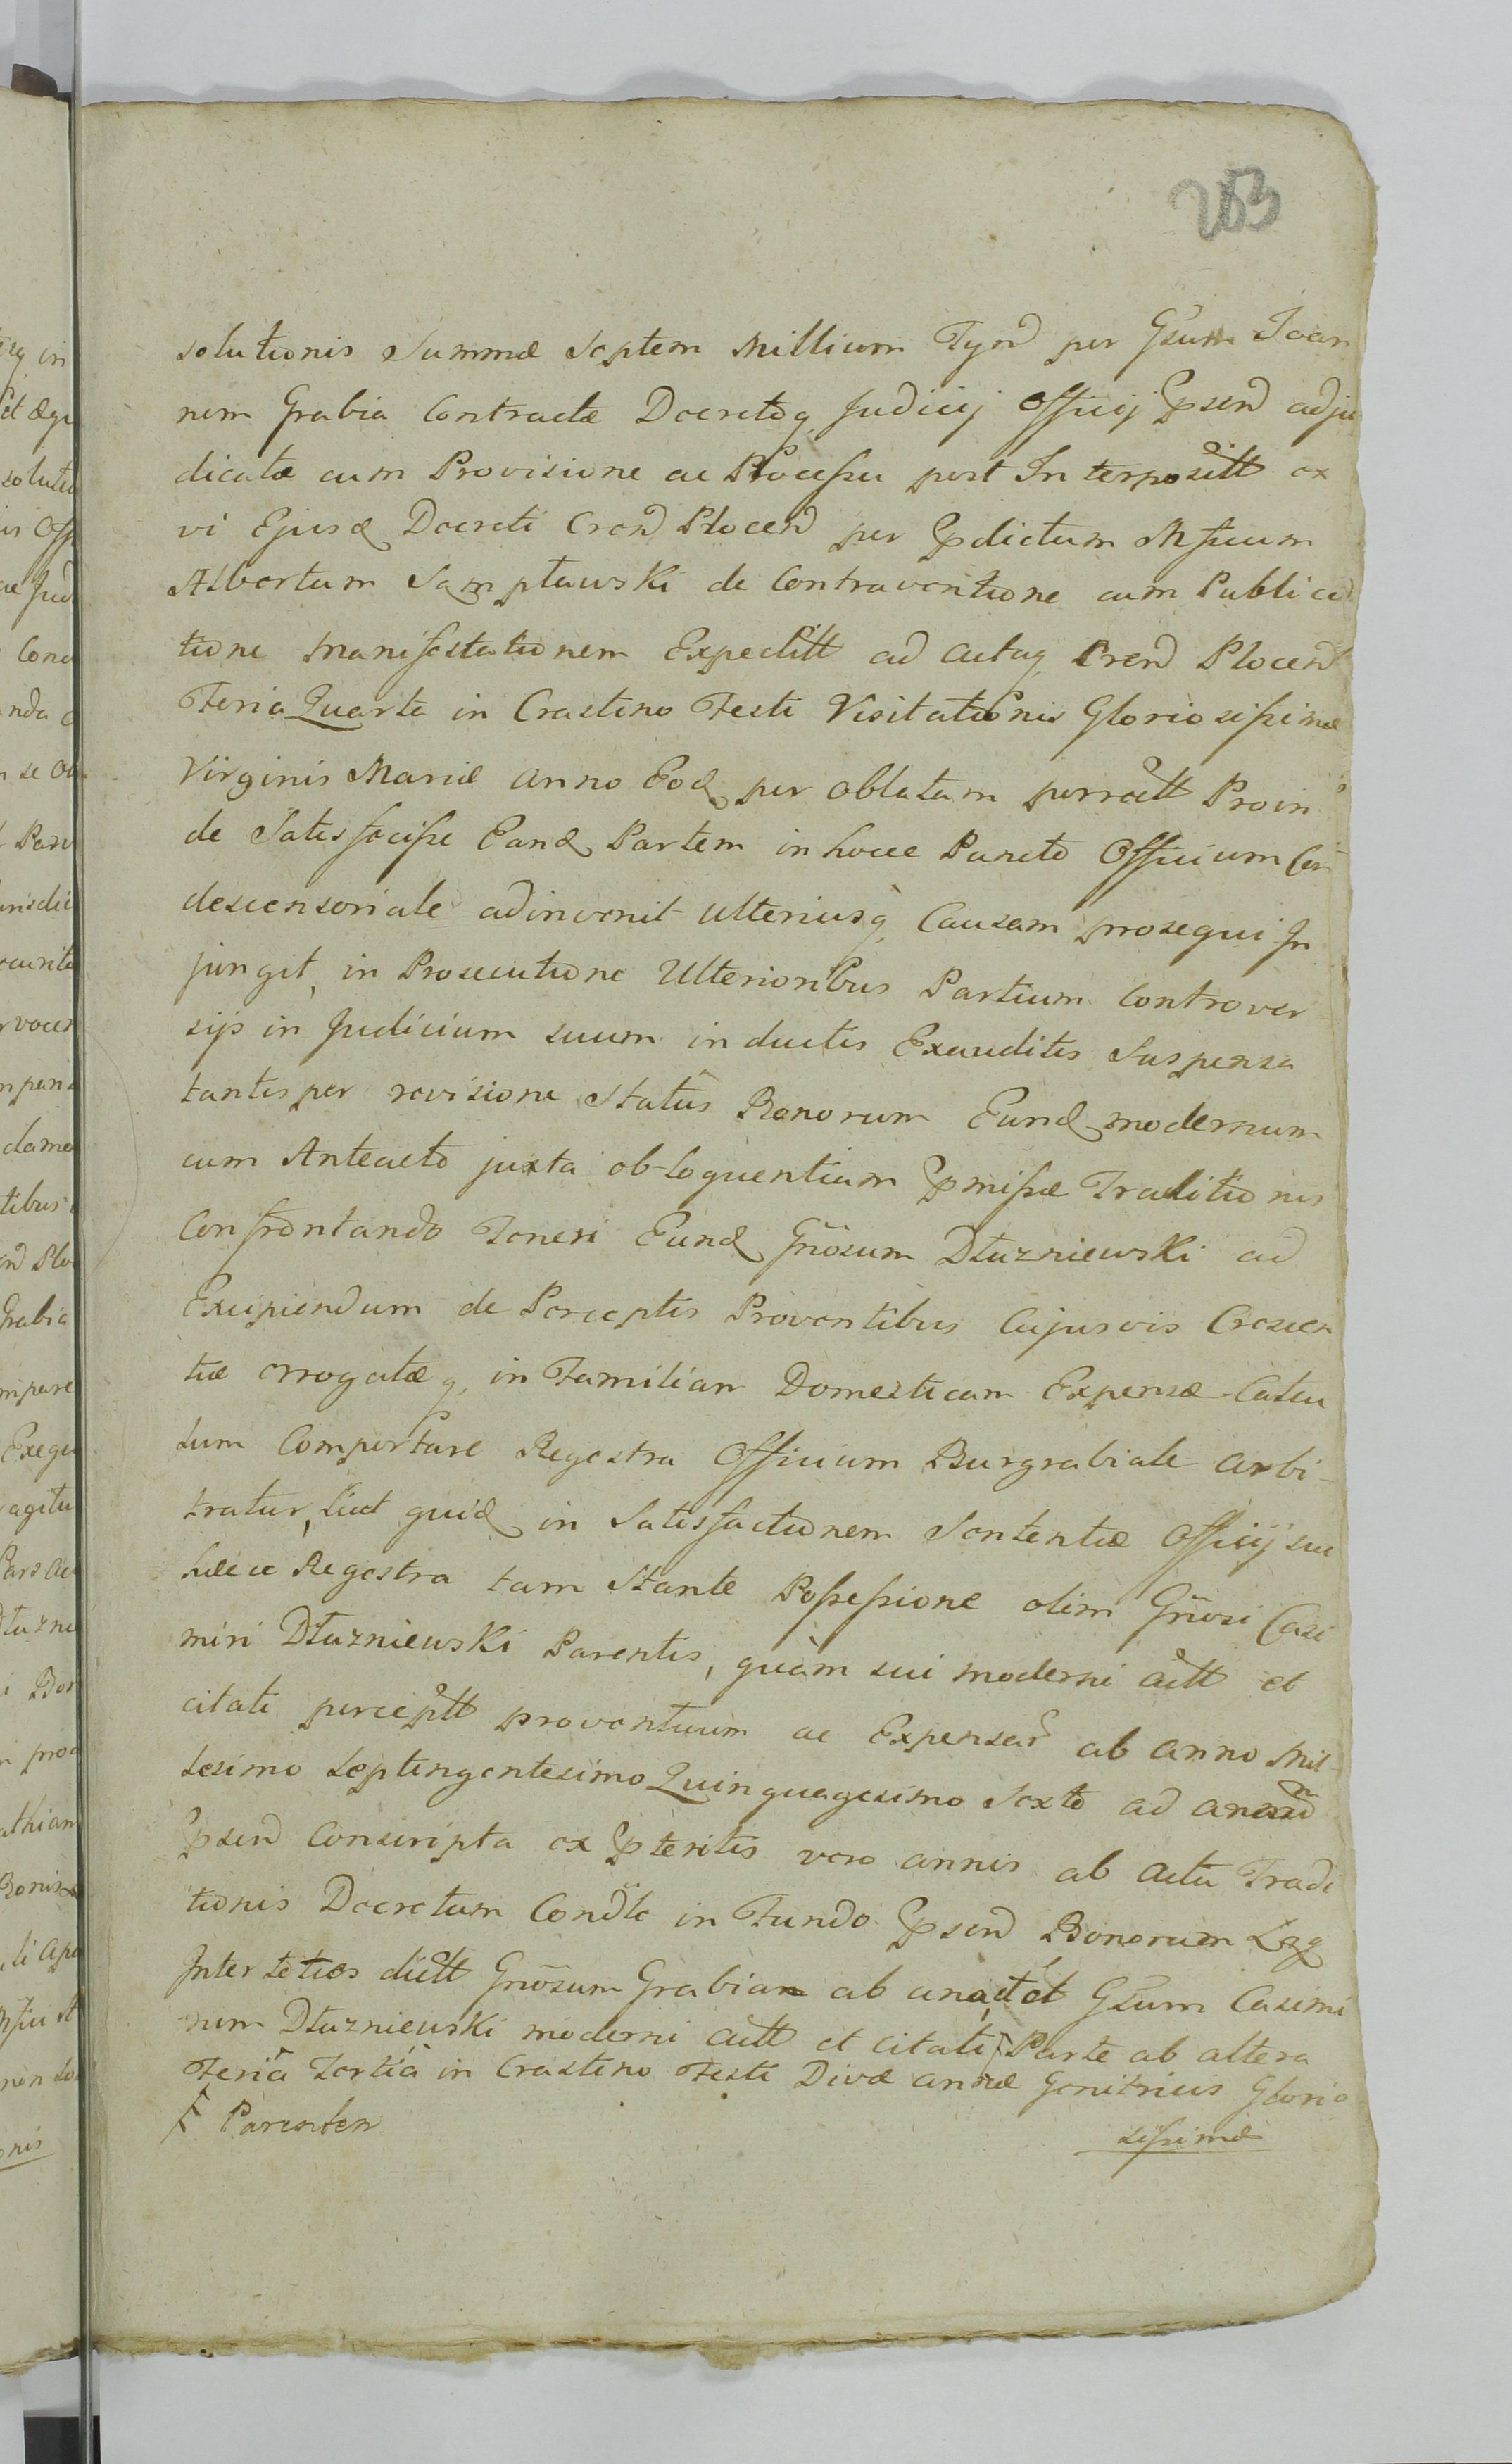 263
solutionis Summæ Septem Millium Tynd per Gsum Joan
nem Grabia Contractæ Decretoq Judicij Officij Psend adju
dicatæ cum Provisione ac Processu post Interposiitt ex
vi Ejusd Decreti Crend Plocend per Pdictum Msticum
Albertum Sąmpławski de Contraventione cum Publica
tione Manifestationem Expeditt ad actaq Crend Plocend
Feria Quarta in Crastino Festi Visitationis Gloriosissimæ
Virginis Mariæ anno Eod per oblatam perrectt Proin
de Satisfecisse Eand Partem in hocce Puncto Officium Con
descensoriale adinvenit ulteriusq Causam prosequi In
jungit, in Prosecutione Ulterioribus Partium Controver
sijs in Judicium suum inductis Exauditis Suspensa
tantisper revisione Statûs Bonorum Eund modernum
cum Anteacto juxta ob-loquentiam Pmissæ Traditionis
Confrontando Teneri Eund Gnosum Dłuzniewski ad
Excipiendum de Perceptis Proventibus Cujusvis Crescen
tiæ erogatæq in Familian Domesticam Expensæ Calcu
lum Comportare Regestra Officium Burgrabiale arbi-
tratur, Siut quid in Satisfactionem Sententiæ Officij sui
hæcce Regestra tam Stante Possessione olim Gnosi Casi
miri Dłuzniewski Parentis, quàm sui moderni actt et
citati perceptt proventuum ac Expensar ab anno Mil-
lesimo Septingentesimo Quinquagesimo Sexto ad
Psend Conscripta ex Pteritis vero annis ab actu Tradi
tionis Decretum Condle in Fundo Psend Bonorum Łąg
Inter tetios dictt Gnosum Grabian ab una, et Gsum Casimi
rum Dłuzniewski moderni actt et citati Ŧ Parte ab altera
Feriâ Tertiâ in Crastino Festi Divæ annæ Genitricis Glorio
Ŧ Parenten
sissimæ